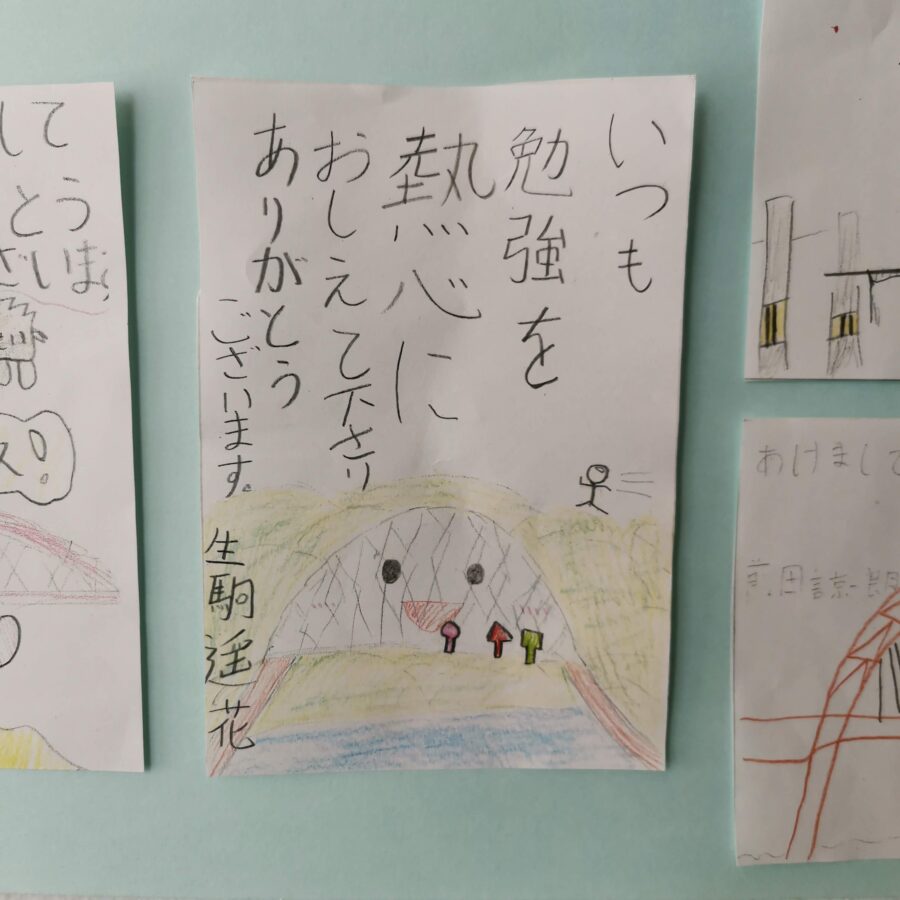 いつも
勉強を
熱心に
おしえて下さり
ありがとう
ございます。
生駒遥花
して
とう
ざいま
ス!
あけまして